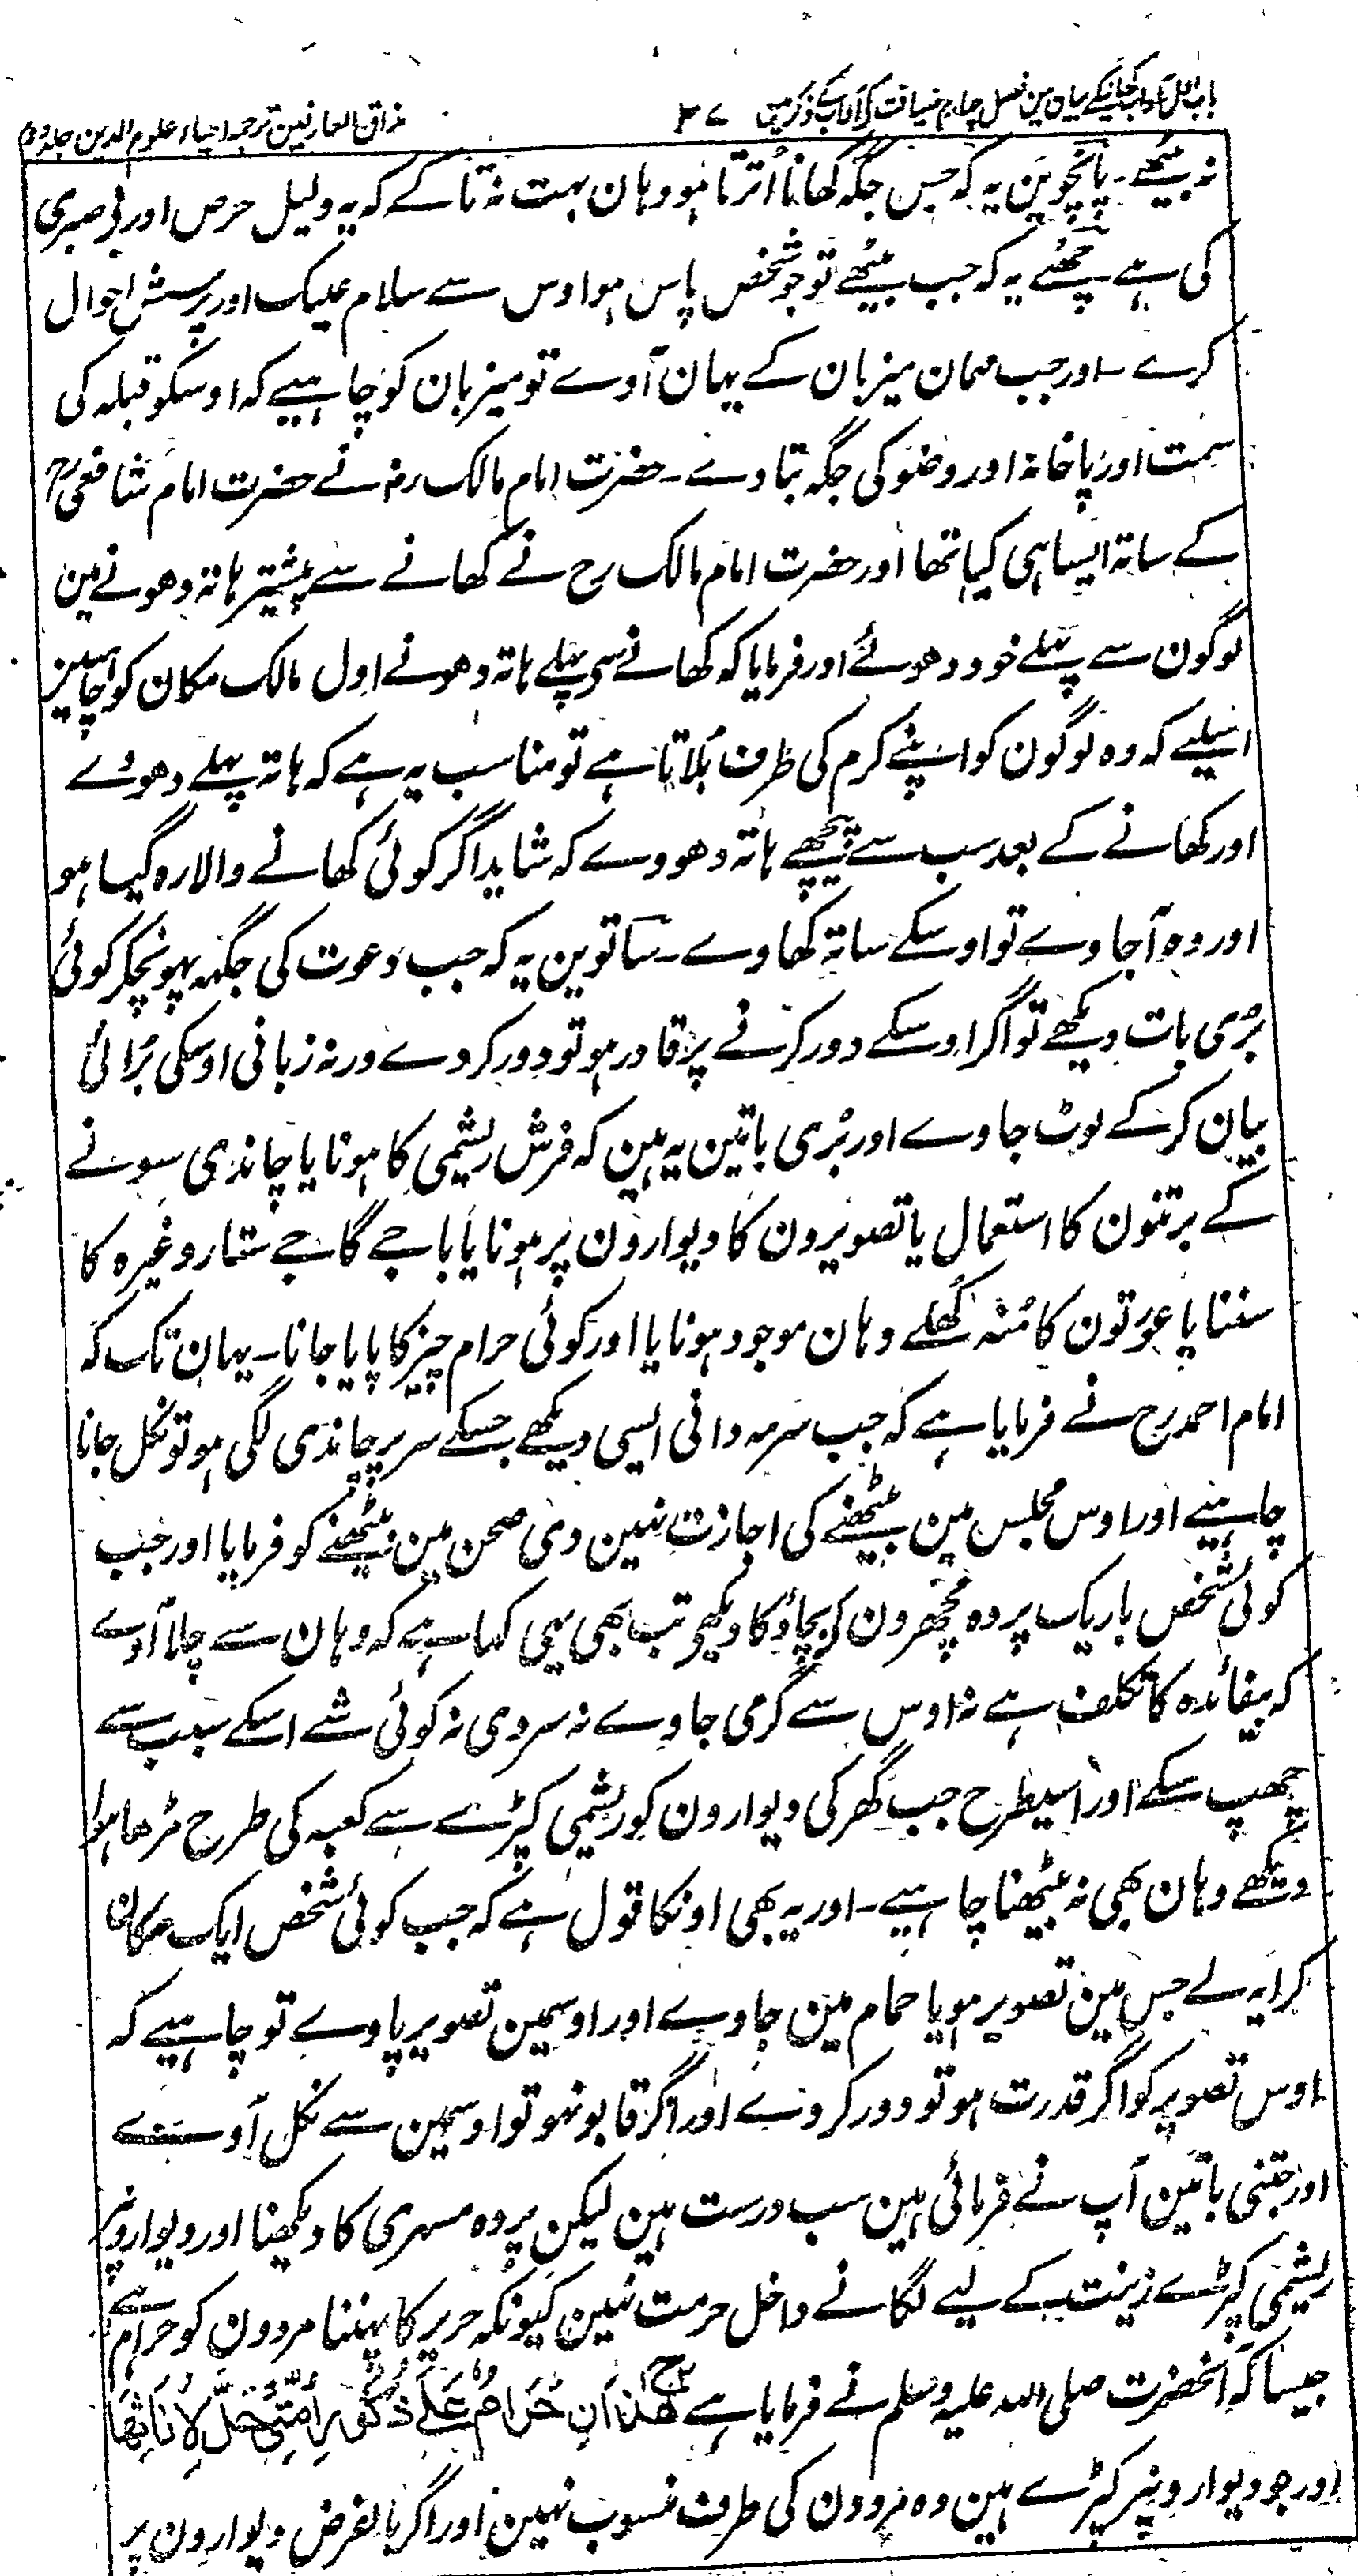 باب اول آداب کھانیکے بیان مین فصل چہارم ضیافت کے آداب کے ذکر مین ۲۷ مذاق العارفین ترجمہ احیاء علوم الدین جلد دوم
نہ بیٹھے۔ پانچوین یہ کہ جس جگہ کھانا اُترتا ہو وہان بہت نہ تاکے کہ یہ دلیل حرص اور بی صبری
کی ہے۔ چھٹے یہ کہ جب بیٹھے تو جو شخص پاس ہو اوس سے سلام علیک اور پرسش احوال
کرے۔ اور جب مہمان میزبان کے یہان آوے تو میزبان کو چاہیے کہ اوسکو قبلہ کی
سمت اور پاخانہ اور وضو کی جگہ بتا دے۔ حضرت امام مالک رح نے حضرت امام شافعی رح
کے ساتہ ایسا ہی کیا تھا اور حضرت امام مالک رح نے کھانے سے پیشتر ہاتہ دھونے مین
لوگون سے پہلے خود دھوئے اور فرمایا کہ کھانے سی پہلے ہاتہ دھونے اول مالک مکان کو چاہیین
اسلیے کہ وہ لوگون کو اپنے کرم کی طرف بُلاتا ہے تو مناسب یہ ہے کہ ہاتہ پہلے دھوئے
اور کھانے کے بعد سب سے پیچھے ہاتہ دھووے کہ شاید اگر کوئی کھانے والا رہ گیا ہو
اور وہ آجاوے تو اوسکے ساتہ کھاوے۔ ساتوین یہ کہ جب دعوت کی جگہہ پہونچکر کوئی
بُری بات دیکھے تو اگر اوسکے دور کرنے پر قادر ہو تو دور کر دے ورنہ زبانی اوسکی بُرائی
بیان کرکے لوٹ جاوے اور بُری باتین یہ ہین کہ فرش ریشمی کا ہونا یا چاندی سونے
کے برتنون کا استعمال یا تصویرون کا دیوارون پر ہونا یا باجے گاجے ستار وغیرہ کا
سننا یا عورتون کا مُنہ کُھلے وہان موجود ہونا یا اور کوئی حرام چیز کا پایا جانا۔ یہان تک کہ
امام احمد رح نے فرمایا ہے کہ جب سرمہ دانی ایسی دیکھے جسکے سر پر چاندی لگی ہو تو نکل جانا
چاہیے اور اوس مجلس مین بیٹھنے کی اجازت نہین دی صحن مین بیٹھنے کو فرمایا اور جب
کوئی شخص باریک پردہ مچھرون کے بچاؤ کا دیکھے تب بھی یہی کہا ہے کہ وہان سے چلا آوے
کہ بیفائدہ کا تکلف ہے نہ اوس سے گرمی جاوے نہ سردی نہ کوئی شے اسکے سبب سے
چھپ سکے اور اسیطرح جب گھر کی دیوارون کو ریشمی کپڑے سے کعبہ کی طرح مڑھا ہوا
دیکھے وہان بھی نہ بیٹھنا چاہیے۔ اور یہ بھی اونکا قول ہے کہ جب کوئی شخص ایک مکان
کرایہ لے جس مین تصویر ہو یا حمام مین جاوے اور اوسمین تصویر پاوے تو چاہیے کہ
اوس تصویر کو اگر قدرت ہو تو دور کر دے اور اگر قابو نہو تو اوسمین سے نکل آوے
اور جتنی باتین آپ نے فرمائی ہین سب درست ہین لیکن پردہ مسہری کا دیکھنا اور دیوارونپر
ریشمی کپڑے زینت کے لیے لگانے داخل حرمت نہین کیونکہ حریر کا پہننا مردون کو حرام ہے
جیسا کہ آنحضرت صلی اللہ علیہ وسلم نے فرمایا ہے هٰذَانِ حَرَامٌ عَلٰی ذُکُوْرِ اُمَّتِیْ حِلٌّ لِاِنَاثِهَا
اور جو دیوارونپر کپڑے ہین وہ مردون کی طرف منسوب نہین اور اگر بالفرض دیوارون پر